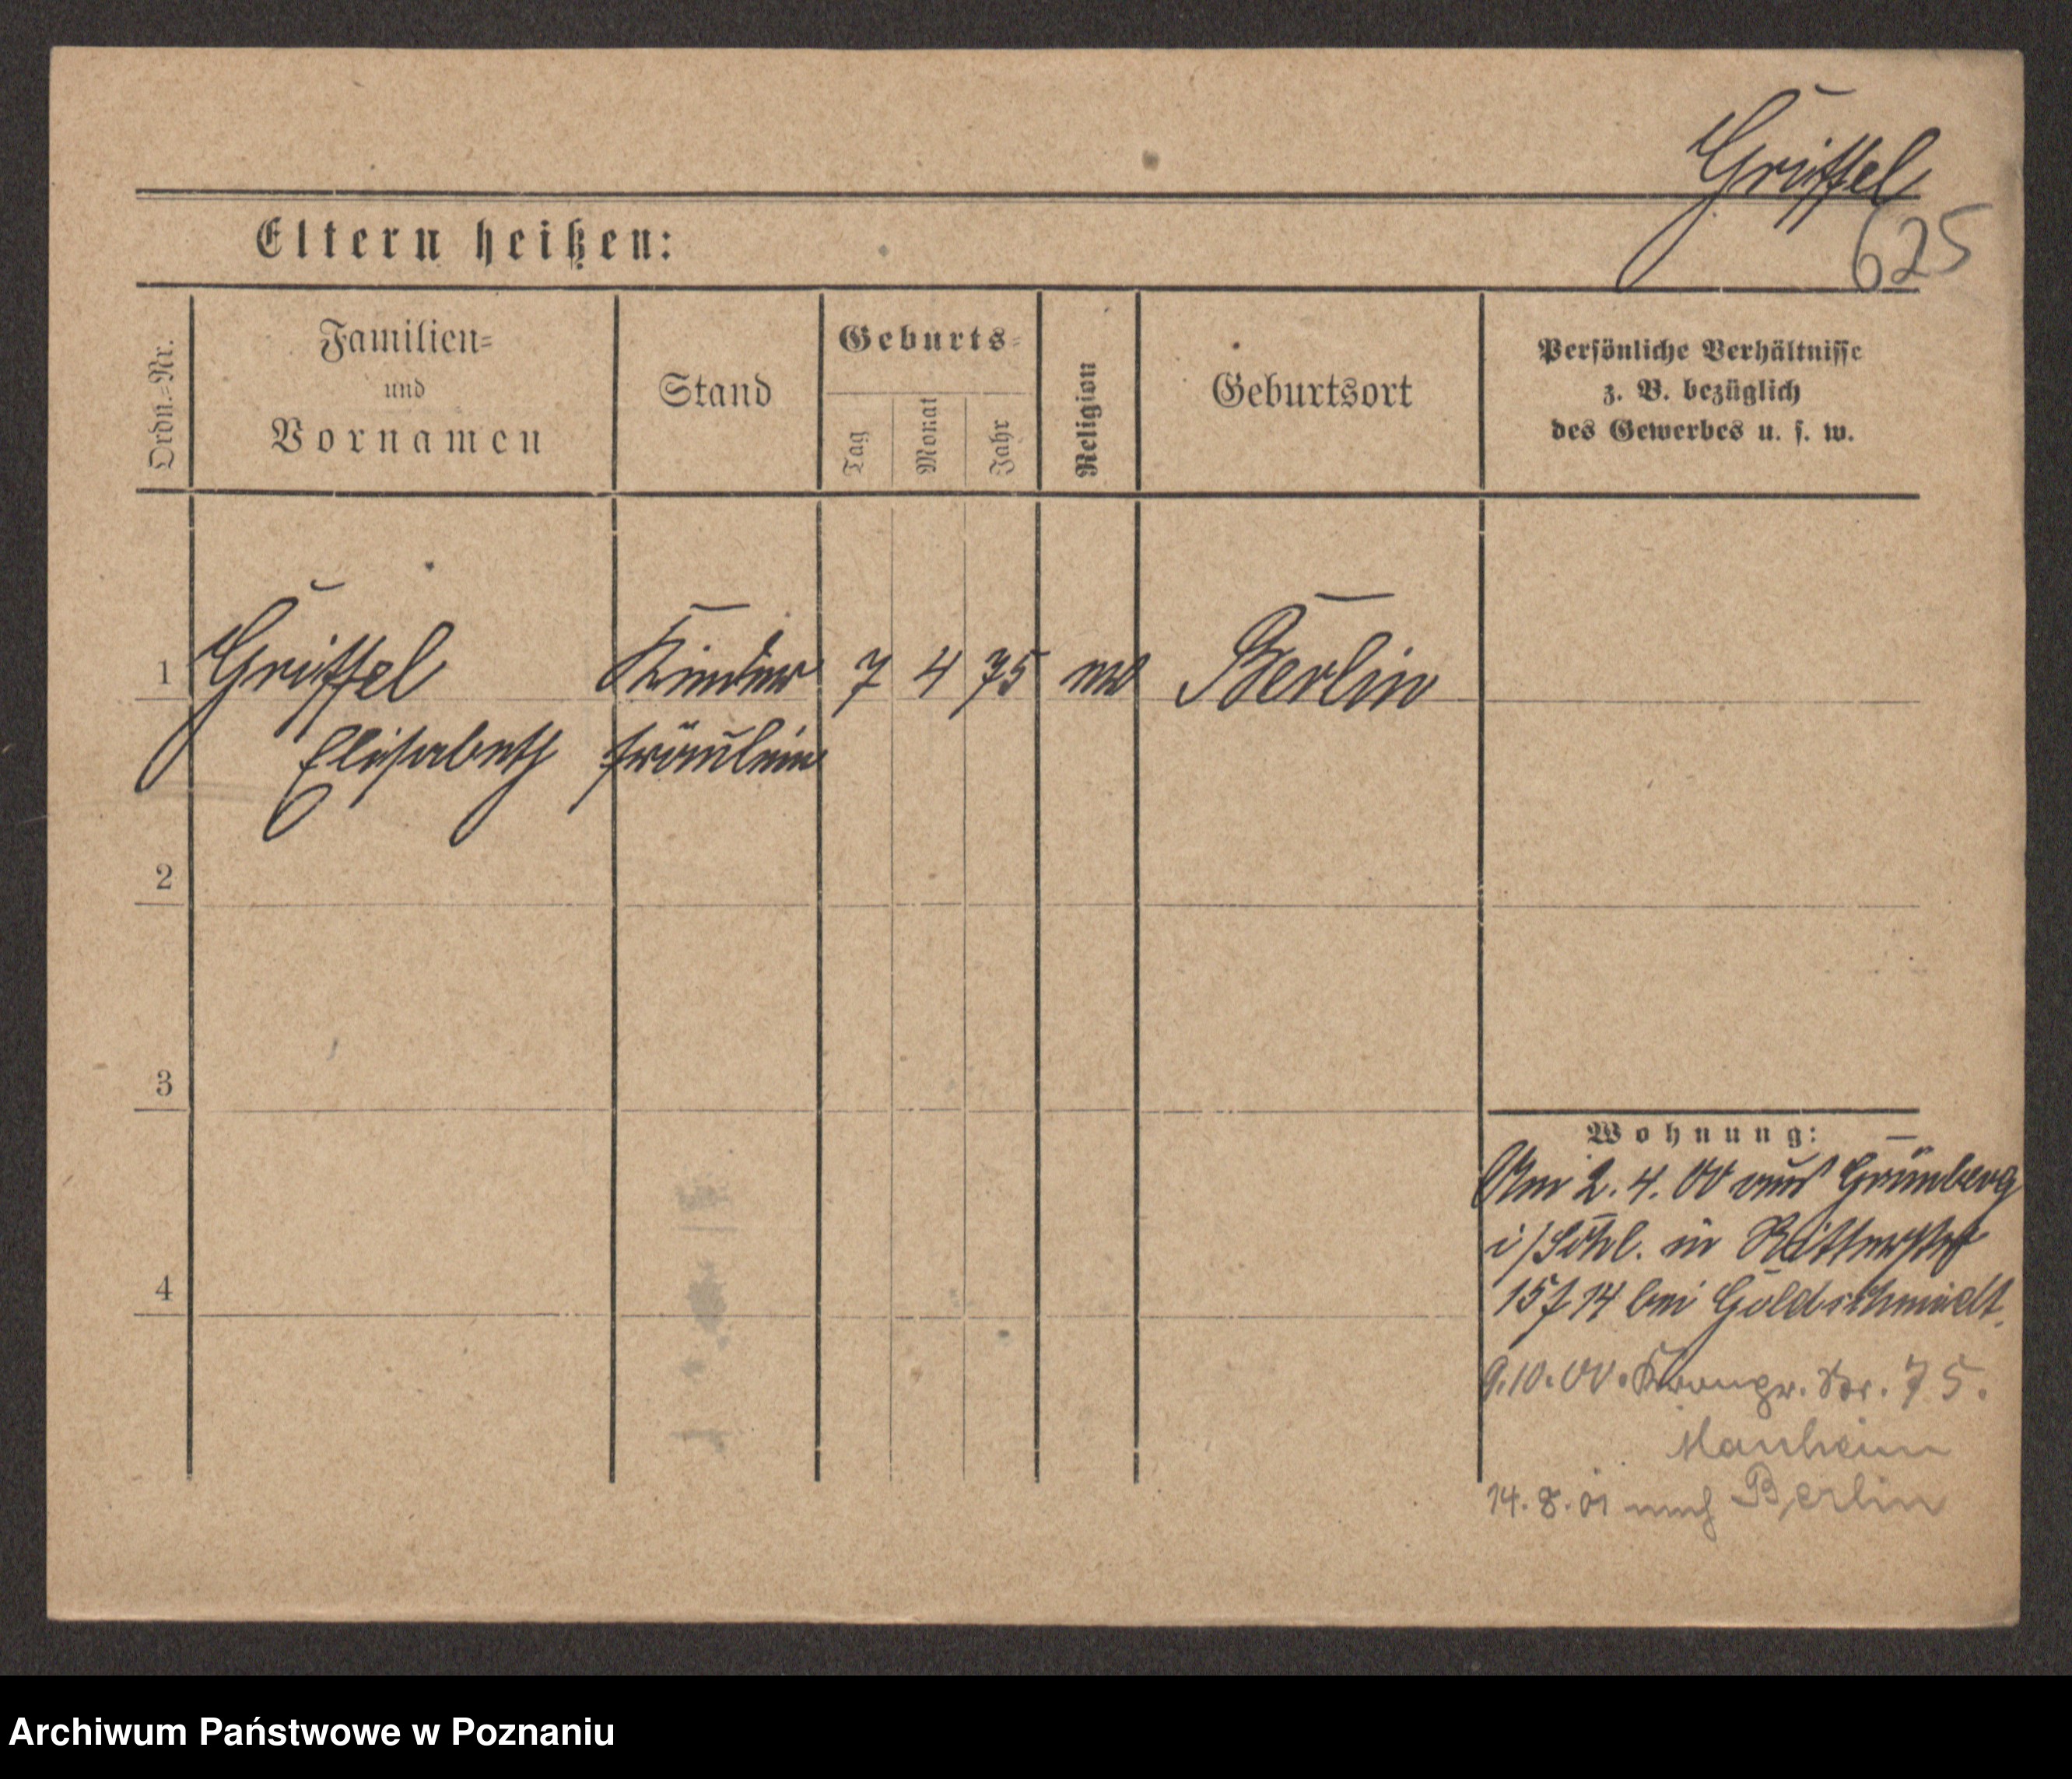 Grüffel
625
Eltern heißen:
Ordn.=Nr.
Familien=
und
Vornamen
Stand
Geburts=
Tag
Monat
Jahr
Religion
Geburtsort
Persönliche Verhältnisse
z. B. bezüglich
des Gewerbes u. s. w.
1 Grüffel Kinder 7 4 75 ev Berlin
Elisabeth fräulein
2
3
4
Wohnung:
Am 2. 4. 00 aus Grünberg
i/Schl. in Ritterstr
15 f 14 bei Goldschmidt.
9.10.00. Kronpr. Str. 75.
Manheim
14. 8. 01 nach Berlin
Archiwum Państwowe w Poznaniu